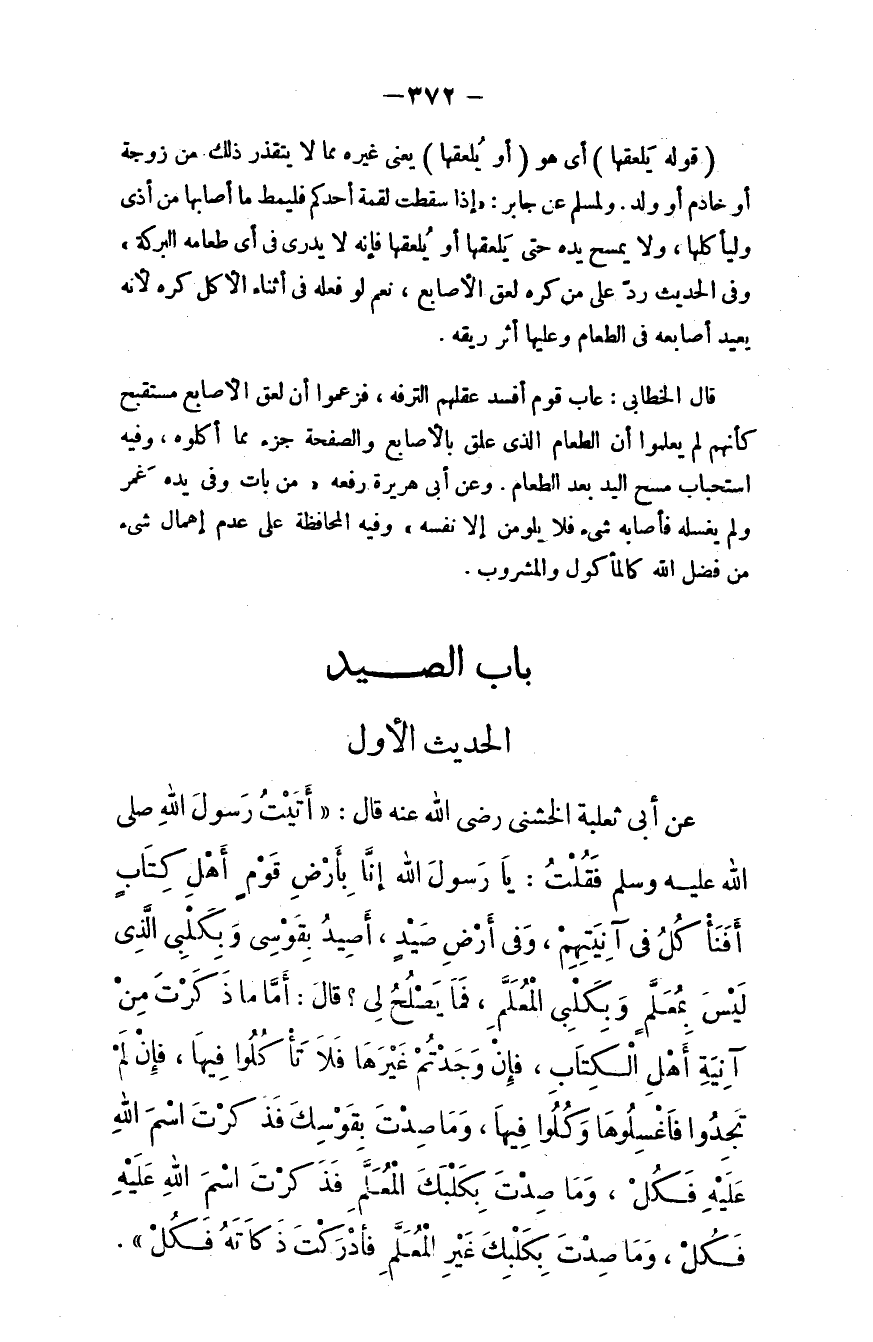 — ٣٧٢ —
( قوله يَلعقها ) أى هو ( أو يُلعقها ) يعنى غيره مما لا يتقذر ذلك من زوجة
أو خادم أو ولد . ولمسلم عن جابر : «إذا سقطت لقمة أحدكم فليمط ما أصابها من أذى
وليأكلها ، ولا يمسح يده حتى يَلعقها أو يُلعقها فإنه لا يدرى فى أى طعامه البركة »
وفى الحديث ردّ على من كره لعق الأصابع ، نعم لو فعله فى أثناء الأكل كره لأنه
يعيد أصابعه فى الطعام وعليها أثر ريقه .
قال الخطابى : عاب قوم أفسد عقلهم الترفه ، فزعموا أن لعق الأصابع مستقبح
كأنهم لم يعلموا أن الطعام الذى علق بالأصابع والصفحة جزء مما أكلوه ، وفيه
استحباب مسح اليد بعد الطعام . وعن أبى هريرة رفعه « من بات وفى يده غَمر
ولم يغسله فأصابه شىء فلا يلومن إلا نفسه » وفيه المحافظة على عدم إهمال شىء
من فضل الله كالمأكول والمشروب .
باب الصـــيد
الحديث الأول
عن أبى ثعلبة الخشنى رضى الله عنه قال : « أَتَيْتُ رَسولَ اللهِ صلى
الله عليه وسلم فَقُلْتُ : يا رَسولَ الله إنَّا بِأَرْضِ قَوْمٍ أَهْلِ كِتَابٍ
أَفَنَأْكُلُ فى آنِيَتِهِمْ ، وَفى أَرْضِ صَيْدٍ ، أَصِيدُ بِقَوْسِى وَبِكَلْبِى الَّذِى
لَيْسَ بِمُعَلَّمٍ وَبِكَلْبِى الْمُعَلَّمِ ، فَمَا يَصْلُحُ لِى ؟ قالَ : أَمَّا ما ذَكَرْتَ مِنْ
آنِيَةِ أَهْلِ الْكِتَابِ ، فإنْ وَجَدْتُمْ غَيْرَهَا فَلاَ تَأْكُلُوا فِيهَا ، فإنْ لَمْ
تَجِدُوا فاغْسِلُوهَا وَكُلُوا فِيهَا ، وَمَا صِدْتَ بِقَوْسِكَ فَذَكَرْتَ اسْمَ اللهِ
عَلَيْهِ فَـكُلْ ، وَمَا صِدْتَ بِكَلْبِكَ الْمُعَلَّمِ فَذَكَرْتَ اسْمَ اللهِ عَلَيْهِ
فَـكُلْ ، وَمَا صِدْتَ بِكَلْبِكَ غَيْرِ الْمُعَلَّمِ فأدْرَكْتَ ذَكَاتَهُ فَـكُلْ » .